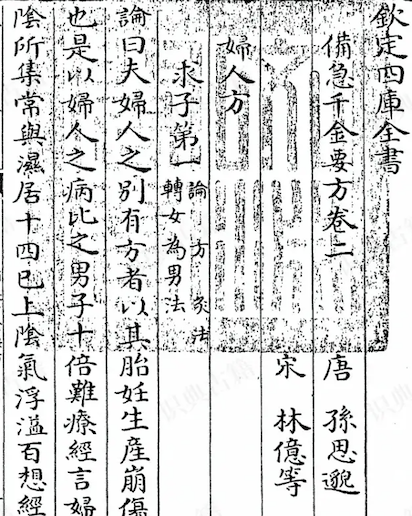 欽定四庫全書
備急千金要方卷二
唐 孫思邈
宋 林億等
婦人方
求子第一 論 方 灸法
轉女為男法
論曰夫婦人之別有方者以其胎妊生產崩傷
也是以婦人之病比之男子十倍難療經言婦
陰所集常與濕居十四已上陰氣浮溢百想經